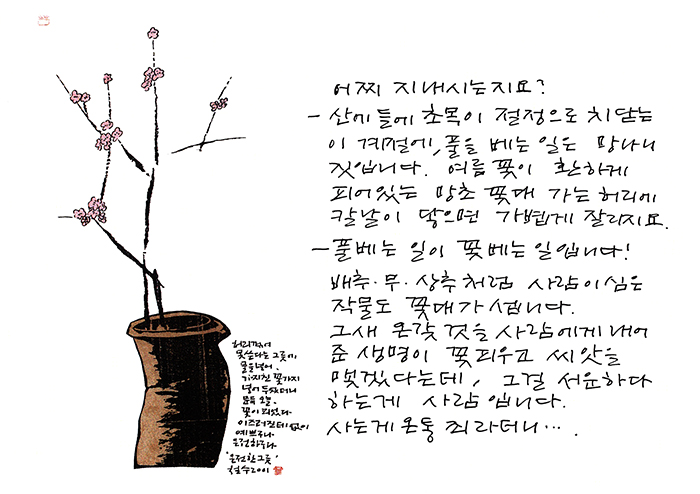 어찌 지내시는지요?
- 산에 들에 초목이 절정으로 치닫는
이 계절에, 풀을 베는 일은 망나니
짓입니다. 여름 꽃이 환하게
피어있는 망초 꽃대 가는 허리에
칼날이 닿으면 가볍게 잘리지요.
- 풀베는 일이 꽃베는 일입니다!
배추·무·상추처럼 사람이 심은
작물도 꽃대가 섭니다.
그새 온갖 것을 사람에게 내어
준 생명이 꽃피우고 씨앗을
맺겠다는데, 그걸 서운하다
하는게 사람입니다.
사는게 온통 죄라더니….
허리꺾여
못쓴다는 그릇에
물을 넣어.
가지친 꽃가지
넣어 두었더니
문득 오늘.
꽃이 피었다
이즈러진데 없이
예쁘구나
온전하구나
'온전한 그릇'
철수 2001